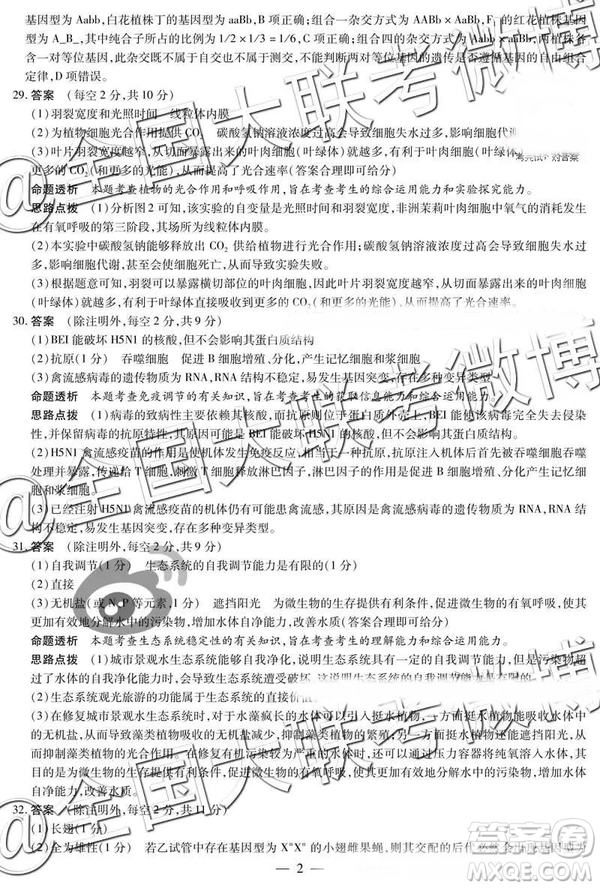 基因型为 Aabb,白花植株丁的基因型为 aaBb,B 项正确;组合一杂交方式为 AABb×AaBb,F₁ 的红花植株基因型为
A_B_,其中纯合子所占的比例为 1/2×1/3=1/6,C 项正确;组合四的杂交方式为 Aabb×aaBb,两植株各
含一对等位基因,此杂交既不属于自交也不属于测交,无法判断两对等位基因的遗传是否遵循基因的自由组合
定律,D 项错误。
29. 答案 (每空 2 分,共 10 分)
(1)羽裂宽度和光照时间 线粒体内膜
(2)为植物细胞光合作用提供 CO₂ 碳酸氢钠溶液浓度过高会导致细胞失水过多,影响细胞代谢
(3)叶片羽裂宽度越窄,从切面暴露出来的叶肉细胞(叶绿体)就越多,有利于叶绿体直接吸收到更多的 CO₂
(和更多的光能),从而提高光合速率(答案合理即可给分)
命题透析 本题考查植物的光合作用和呼吸作用,旨在考查考生的综合运用能力和实验探究能力。
思路点拨 (1)分析图 2 可知,该实验的自变量是光照时间和羽裂宽度,非洲茉莉叶肉细胞中氧气的消耗发生
在有氧呼吸的第三阶段,其场所为线粒体内膜。
(2)本实验中碳酸氢钠能够通过产生 CO₂ 供给植物细胞进行光合作用;碳酸氢钠溶液浓度过高会导致细胞失水过
多,影响细胞代谢,甚至使细胞死亡,从而影响实验结果。
(3)根据题意可知,羽裂可以暴露横切部位的叶肉细胞,因此叶片羽裂宽度越窄,从切面暴露出来的叶肉细胞
(叶绿体)就越多,有利于叶绿体直接吸收到更多的 CO₂(和更多的光能),从而提高了光合速率。
30. 答案 (除注明外,每空 2 分,共 9 分)
(1)BEI 能破坏 H5N1 的核酸,但不会影响其蛋白质结构
(2)抗原(1 分) 吞噬细胞 促进 B 细胞增殖、分化,产生记忆细胞和浆细胞
(3)禽流感病毒的遗传物质为 RNA,RNA 结构不稳定,易发生基因突变,存在多种变异类型
命题透析 本题考查免疫调节的有关知识,旨在考查考生的获取信息能力和综合运用能力。
思路点拨 (1)病毒的致病性主要依赖其核酸,而抗原则位于蛋白质外壳上,BEI 能使该病毒完全失去侵染
性,并保留病毒的抗原特性,其原因可能是 BEI 能破坏 H5N1 的核酸,但不会影响其蛋白质结构。
(2)H5N1 禽流感疫苗的作用是使机体产生免疫反应,因此相当于抗原,抗原注入人体后首先被吞噬细胞吞噬
处理并暴露,传递给 T 细胞,T 细胞释放淋巴因子,淋巴因子的作用是促进 B 细胞增殖、分化,产生记忆细胞
和浆细胞。
(3)已经注射 H5N1 禽流感疫苗的机体仍有可能患禽流感,其原因是禽流感病毒的遗传物质为 RNA,RNA 结构
不稳定,易发生基因突变,存在多种变异类型。
31. 答案 (除注明外,每空 2 分,共 9 分)
(1)自我调节(1 分) 生态系统的自我调节能力是有限的(1 分)
(2)直接
(3)无机盐(或 N、P 等元素,1 分) 遮挡阳光 为微生物的生存提供有利条件,促进微生物的有氧呼吸,使其更
有效地分解水中的污染物,改善水质(答案合理即可给分)
命题透析 本题考查生态系统稳定性的有关知识,旨在考查考生的理解能力和综合运用能力。
思路点拨 (1)城市景观水生态系统能够自我净化,说明生态系统具有一定的自我调节能力,但当污染物超
过了水体的自我净化能力时,会使生态系统遭受破坏,这说明生态系统的自我调节能力是有限的。
(2)生态系统观光旅游的功能属于生态系统的直接价值。
(3)在修复城市景观水生态系统时,对于水藻疯长的水体可以引入挺水植物,一方面挺水植物能吸收水体中
的无机盐,从而导致藻类植物吸收的无机盐减少,抑制藻类植物的繁殖,另一方面挺水植物还能遮挡阳光,从
而抑制藻类植物的光合作用。在修复有机污染严重的水体时,可以通过压力容器将纯氧溶入水体,其
目的是为微生物的生存提供有利条件,促进微生物的有氧呼吸,使其更加有效地分解水体中的污染物,
改善水质。
32. 答案 (除注明外,每空 2 分,共 11 分)
(1)长翅(1 分)
(2)全为雄性(1 分) 若乙试管中存在基因型为 XᵃXᵃ 的小翅雌果蝇,则其交配的后代
— 2 —
@全国大联考微博
@全国大联考微博
答案圈